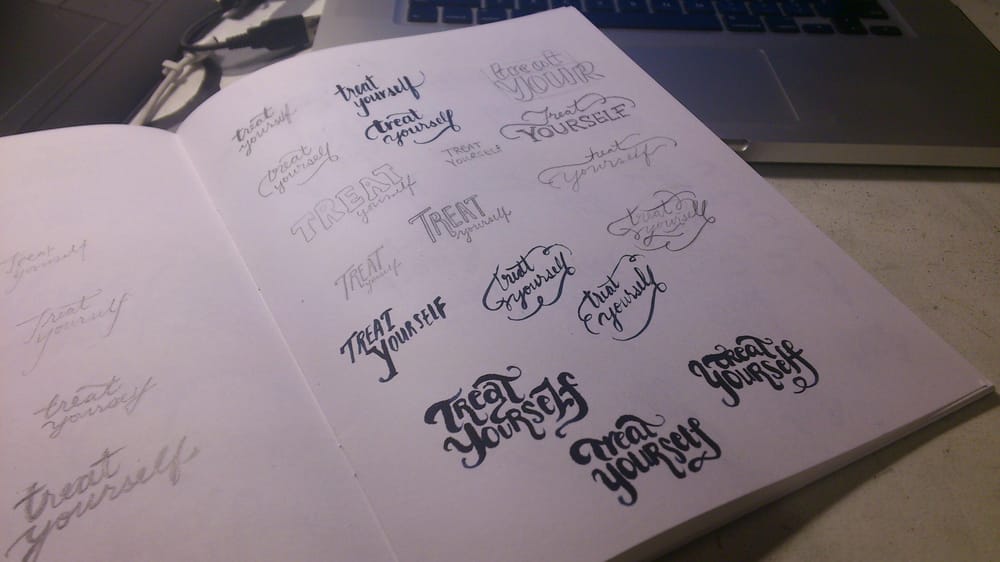 Treat
yourself
Treat
yourself
treat
yourself
treat
yourself
treat
yourself
treat
yourself
treat
yourself
YOUR
Treat
YOURSELF
treat
yourself
TREAT
YOURSELF
treat
yourself
TREAT
yourself
TREAT
yourself
treat
yourself
TREAT
yourself
treat
yourself
treat
yourself
TREAT
YOURSELF
TReaT
YOURSeLf
TReaT
YOURSeLf
TReaT
YOURSeLf